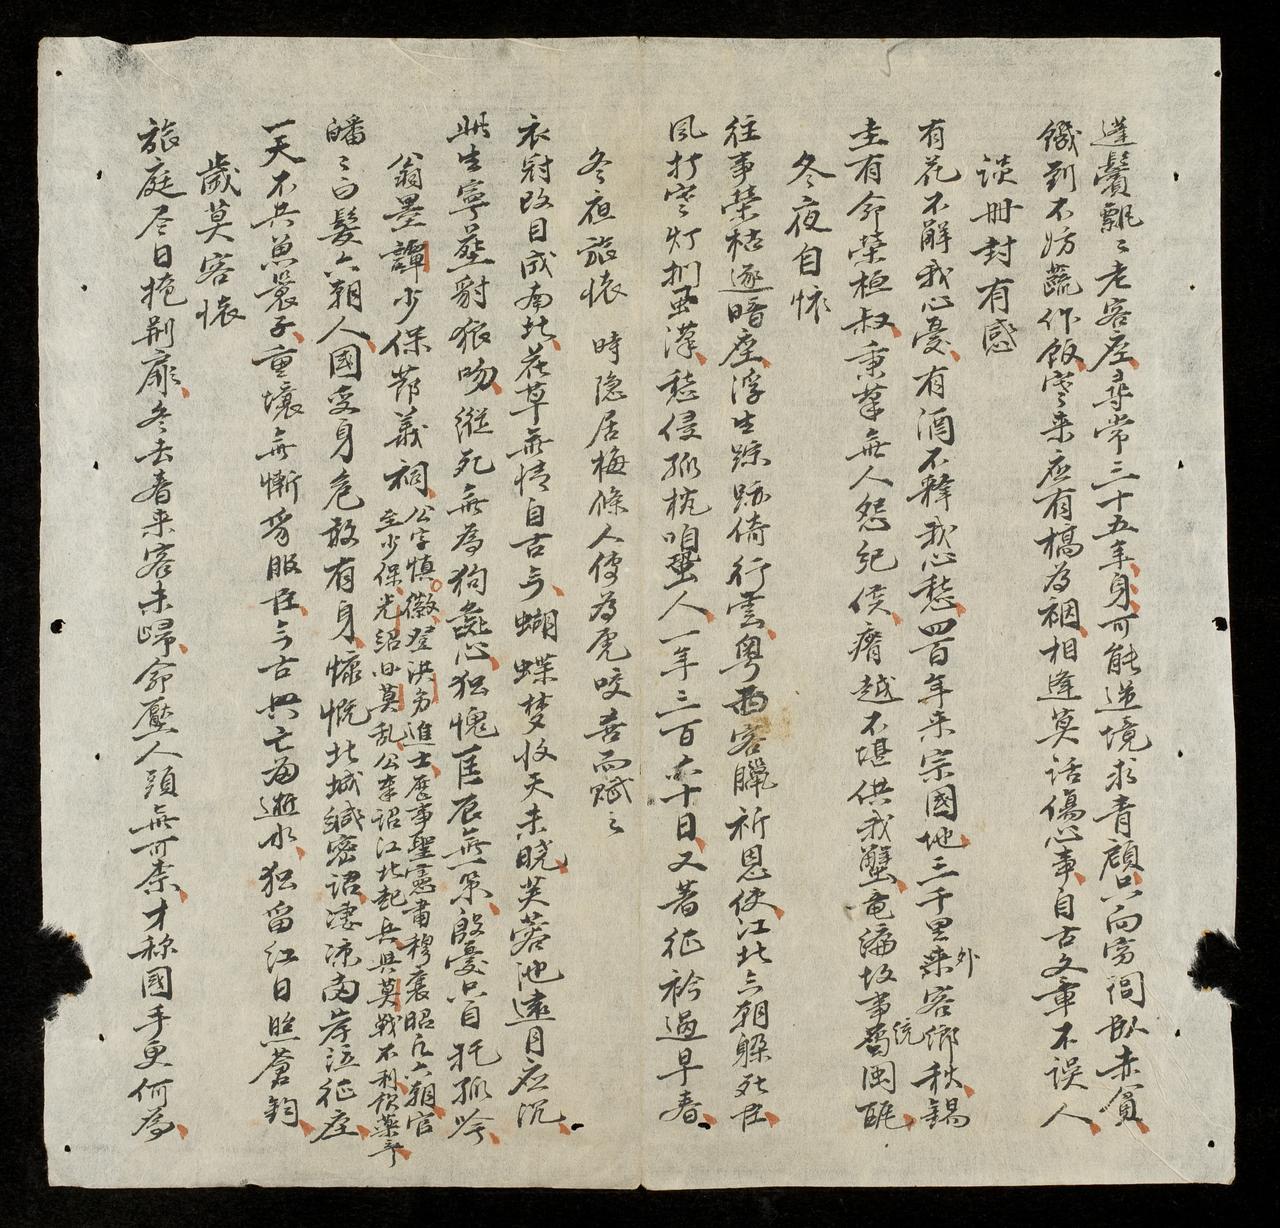 蓬鬢飄〻老客座尋常三十五年身可能逆境求青顧只向窮詞臥未貧
饑到不妨蔬作飯寒来应有槁為裀相逢莫話傷心事自古文章不誤人
談冊封有感
有花不解我心憂有酒不釋我心愁四百年来宗國地三千里外客鄉秋錫
圭有命荣桓叔秉筆無人怨紀侯瘠越不堪供我蟹竜编故事統蜀閩甌
冬夜自怀
往事荣枯逐暗塵浮生踪跡倚行雲粤西客臘祈恩使江北六朝躲死臣
風打寒灯捫虱漢愁侵孤枕咀蚕人一年三百六十日又著征衿過早春
冬夜旅懐　時隐居梅條人傳為虎咬喜而赋之
衣冠改目成南北花草無情自古今蝴蝶梦收天未曉芙蓉池遠月应沉
此生寧葬豺狼吻縱死無為狗彘心独愧匡君無一策殷憂只自托孤吟
翁墨譚少保节義祠
公字慎徽登洪寧進士歷事聖憲肅穆襄昭六朝官
至少保光紹因莫乱公奉詔江北起兵與莫戦不利飲藥卒
皤〻白髮六朝人國变身危敢有身慷慨北城緘密詔凄凉南岸泣征塵
一天不共魚裳子重壤無慚豸服臣今古興亡为逝水独留红日照蒼鈞
歲莫客懐
旅庭尽日掩荆扉冬去春来客未歸命壓人頭無可柰才称國手更何為